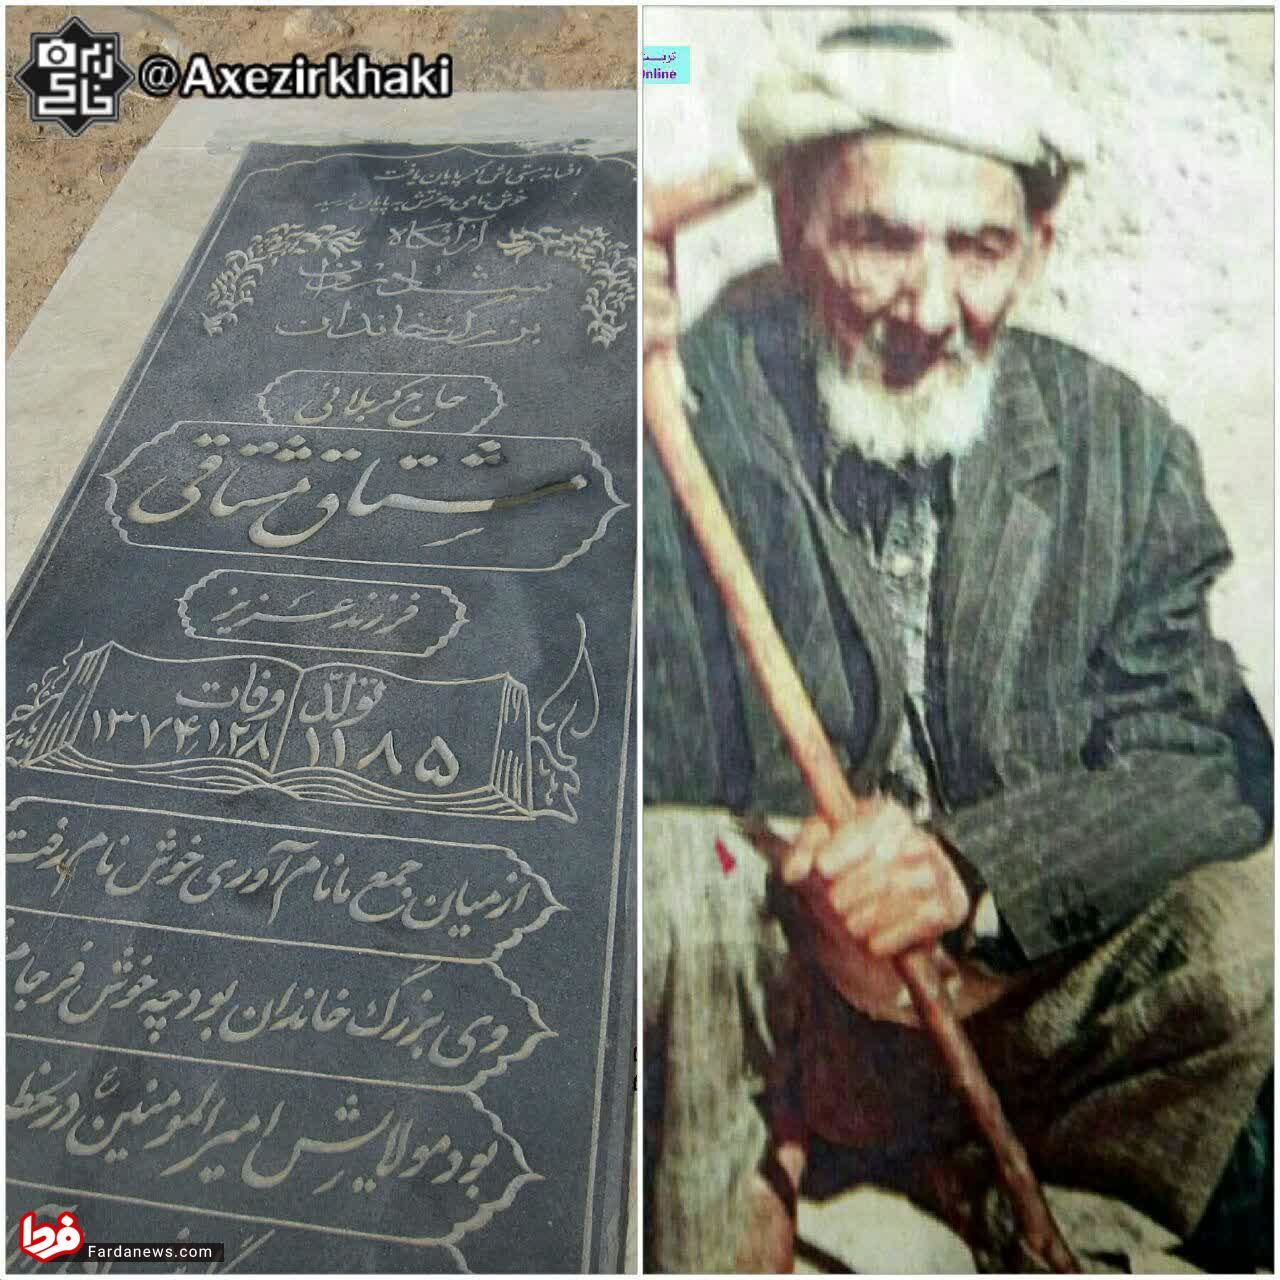 @Axezirkhaki
تربت
Online
افسانه هستی اش اگر پایان یافت
خوش نامی و عزتش به پایان نرسید
آرامگاه
بزرگ خاندان
حاج کربلائی
مشتاق مشتاقی
فرزند عزیز
تولد وفات
۱۱۸۵ ۱۳۷۴٫۱٫۲۸
از میان جمع ما نام آوری خوش نام رفت
وی بزرگ خاندان بود چه خوش فرجام
بود مولایش امیرالمومنین ع در لحظه
فردا
Fardanews.com